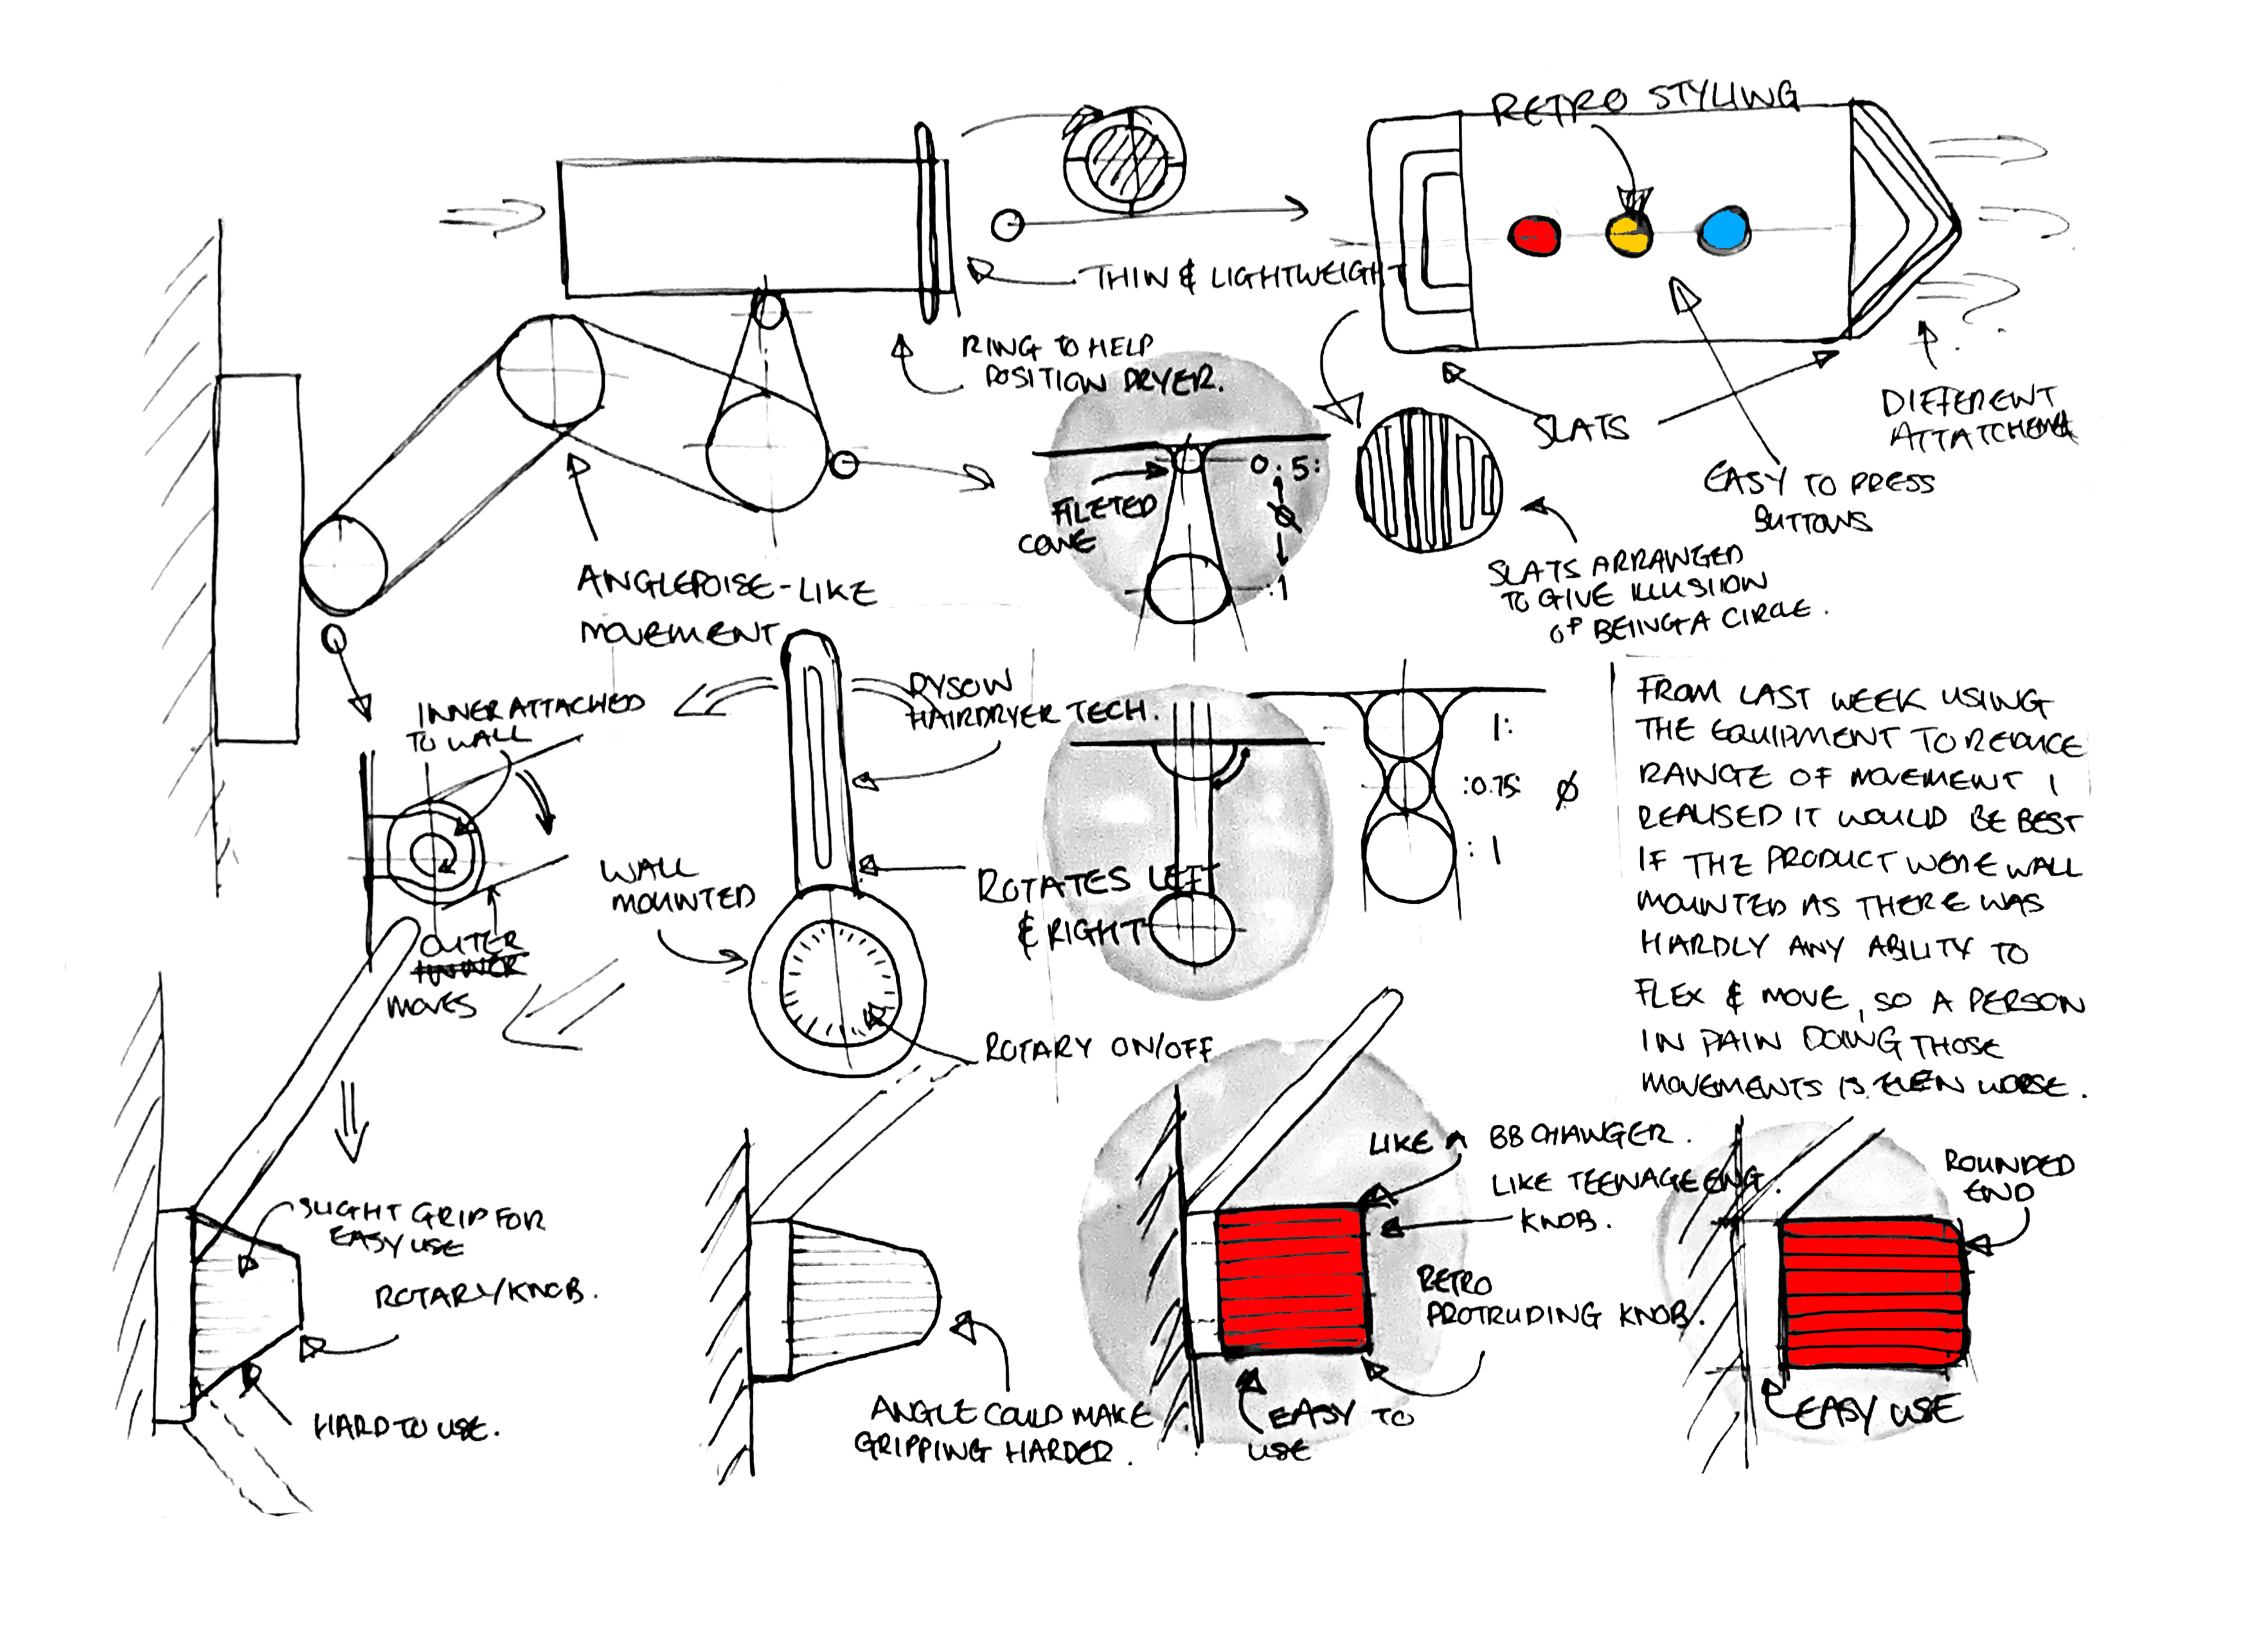 RETRO STYLING
THIN & LIGHTWEIGHT
RING TO HELP
POSITION DRYER.
SLATS
DIFFERENT
EASY TO PRESS
BUTTONS
FILETED
CONE
0.5:
:1
SLATS ARRANGED
TO GIVE ILLUSION
OF BEING A CIRCLE.
ANGLEPOISE-LIKE
MOVEMENT
INNER ATTACHED
TO WALL
OUTER
MOVES
DYSON
HAIRDRYER TECH.
WALL
MOUNTED
ROTATES LEFT
& RIGHT
ROTARY ON/OFF
1:
:0.75: Ø
:1
FROM LAST WEEK USING
THE EQUIPMENT TO REDUCE
RANGE OF MOVEMENT I
REALISED IT WOULD BE BEST
IF THE PRODUCT WERE WALL
MOUNTED AS THERE WAS
HARDLY ANY ABILITY TO
FLEX & MOVE, SO A PERSON
IN PAIN DOING THOSE
MOVEMENTS IS EVEN WORSE.
SLIGHT GRIP FOR
EASY USE
ROTARY/KNOB.
HARD TO USE.
ANGLE COULD MAKE
GRIPPING HARDER.
LIKE A BB CHANGER.
LIKE TEENAGE ENG.
KNOB.
RETRO
PROTRUDING KNOB.
EASY TO
USE
ROUNDED
END
EASY USE